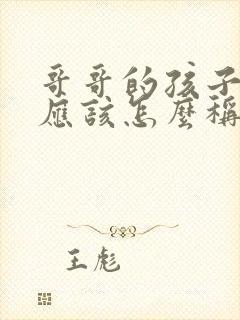 哥哥的孩子
應該怎麼稱
王彪